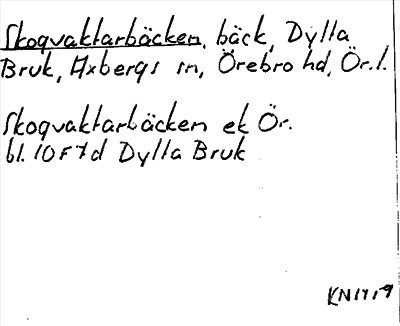 Skogvaktarbäcken, bäck, Dylla
Bruk, Axbergs sn, Örebro hd, Ör.l.
Skogvaktarbäcken ek Ör.
bl. 10F7d Dylla Bruk